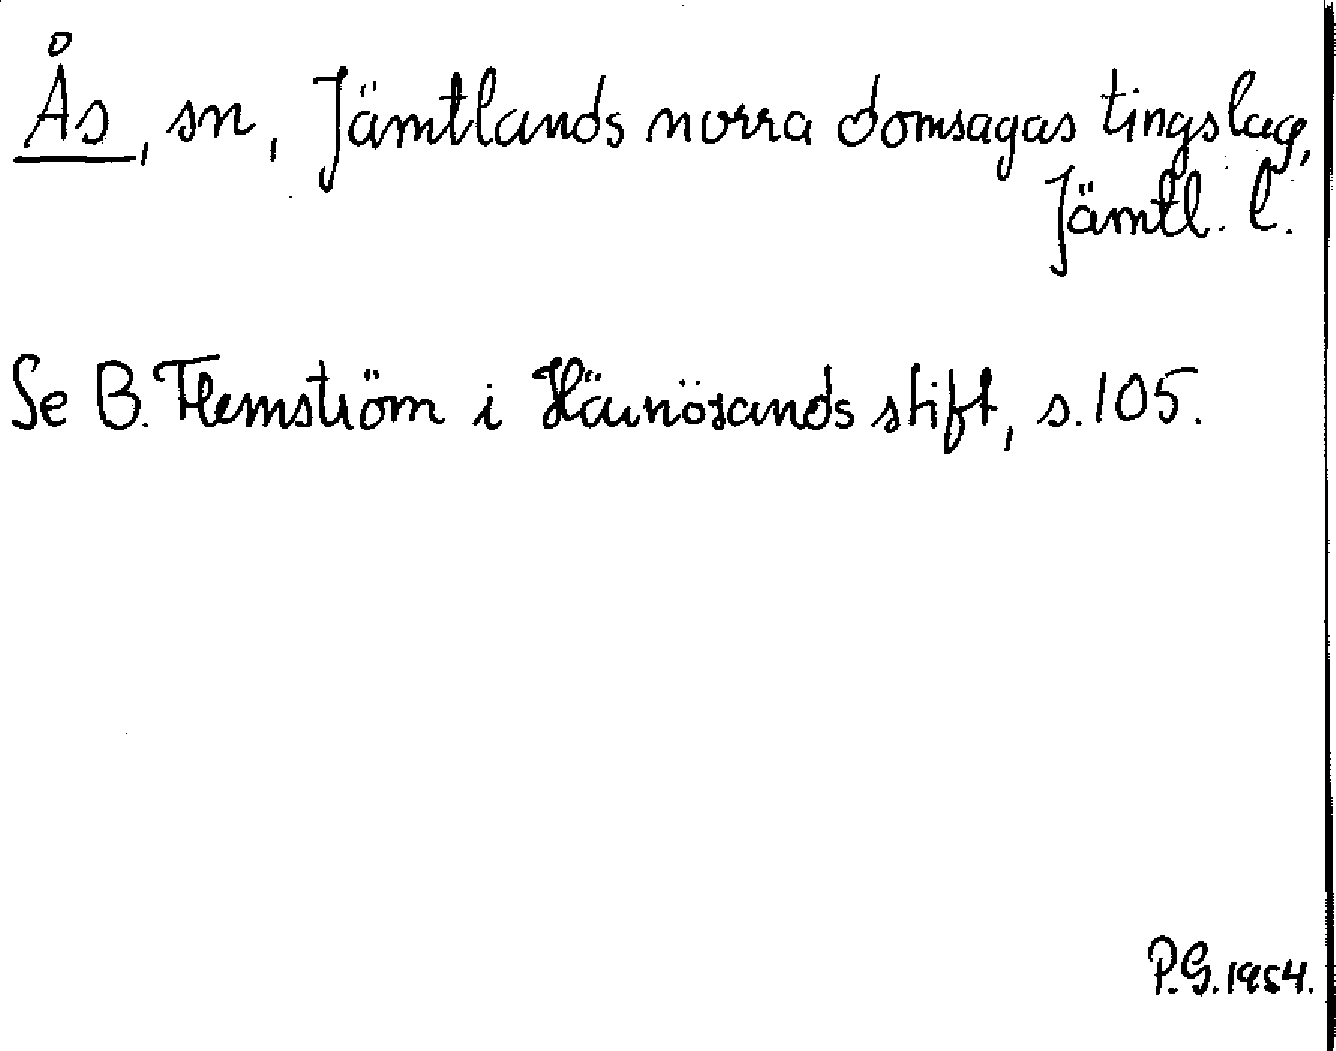 Ås, sn, Jämtlands norra domsagas tingslag,
Jämtl. l.
Se B. Flemström i Härnösands stift, s. 105.
P.G. 1954.